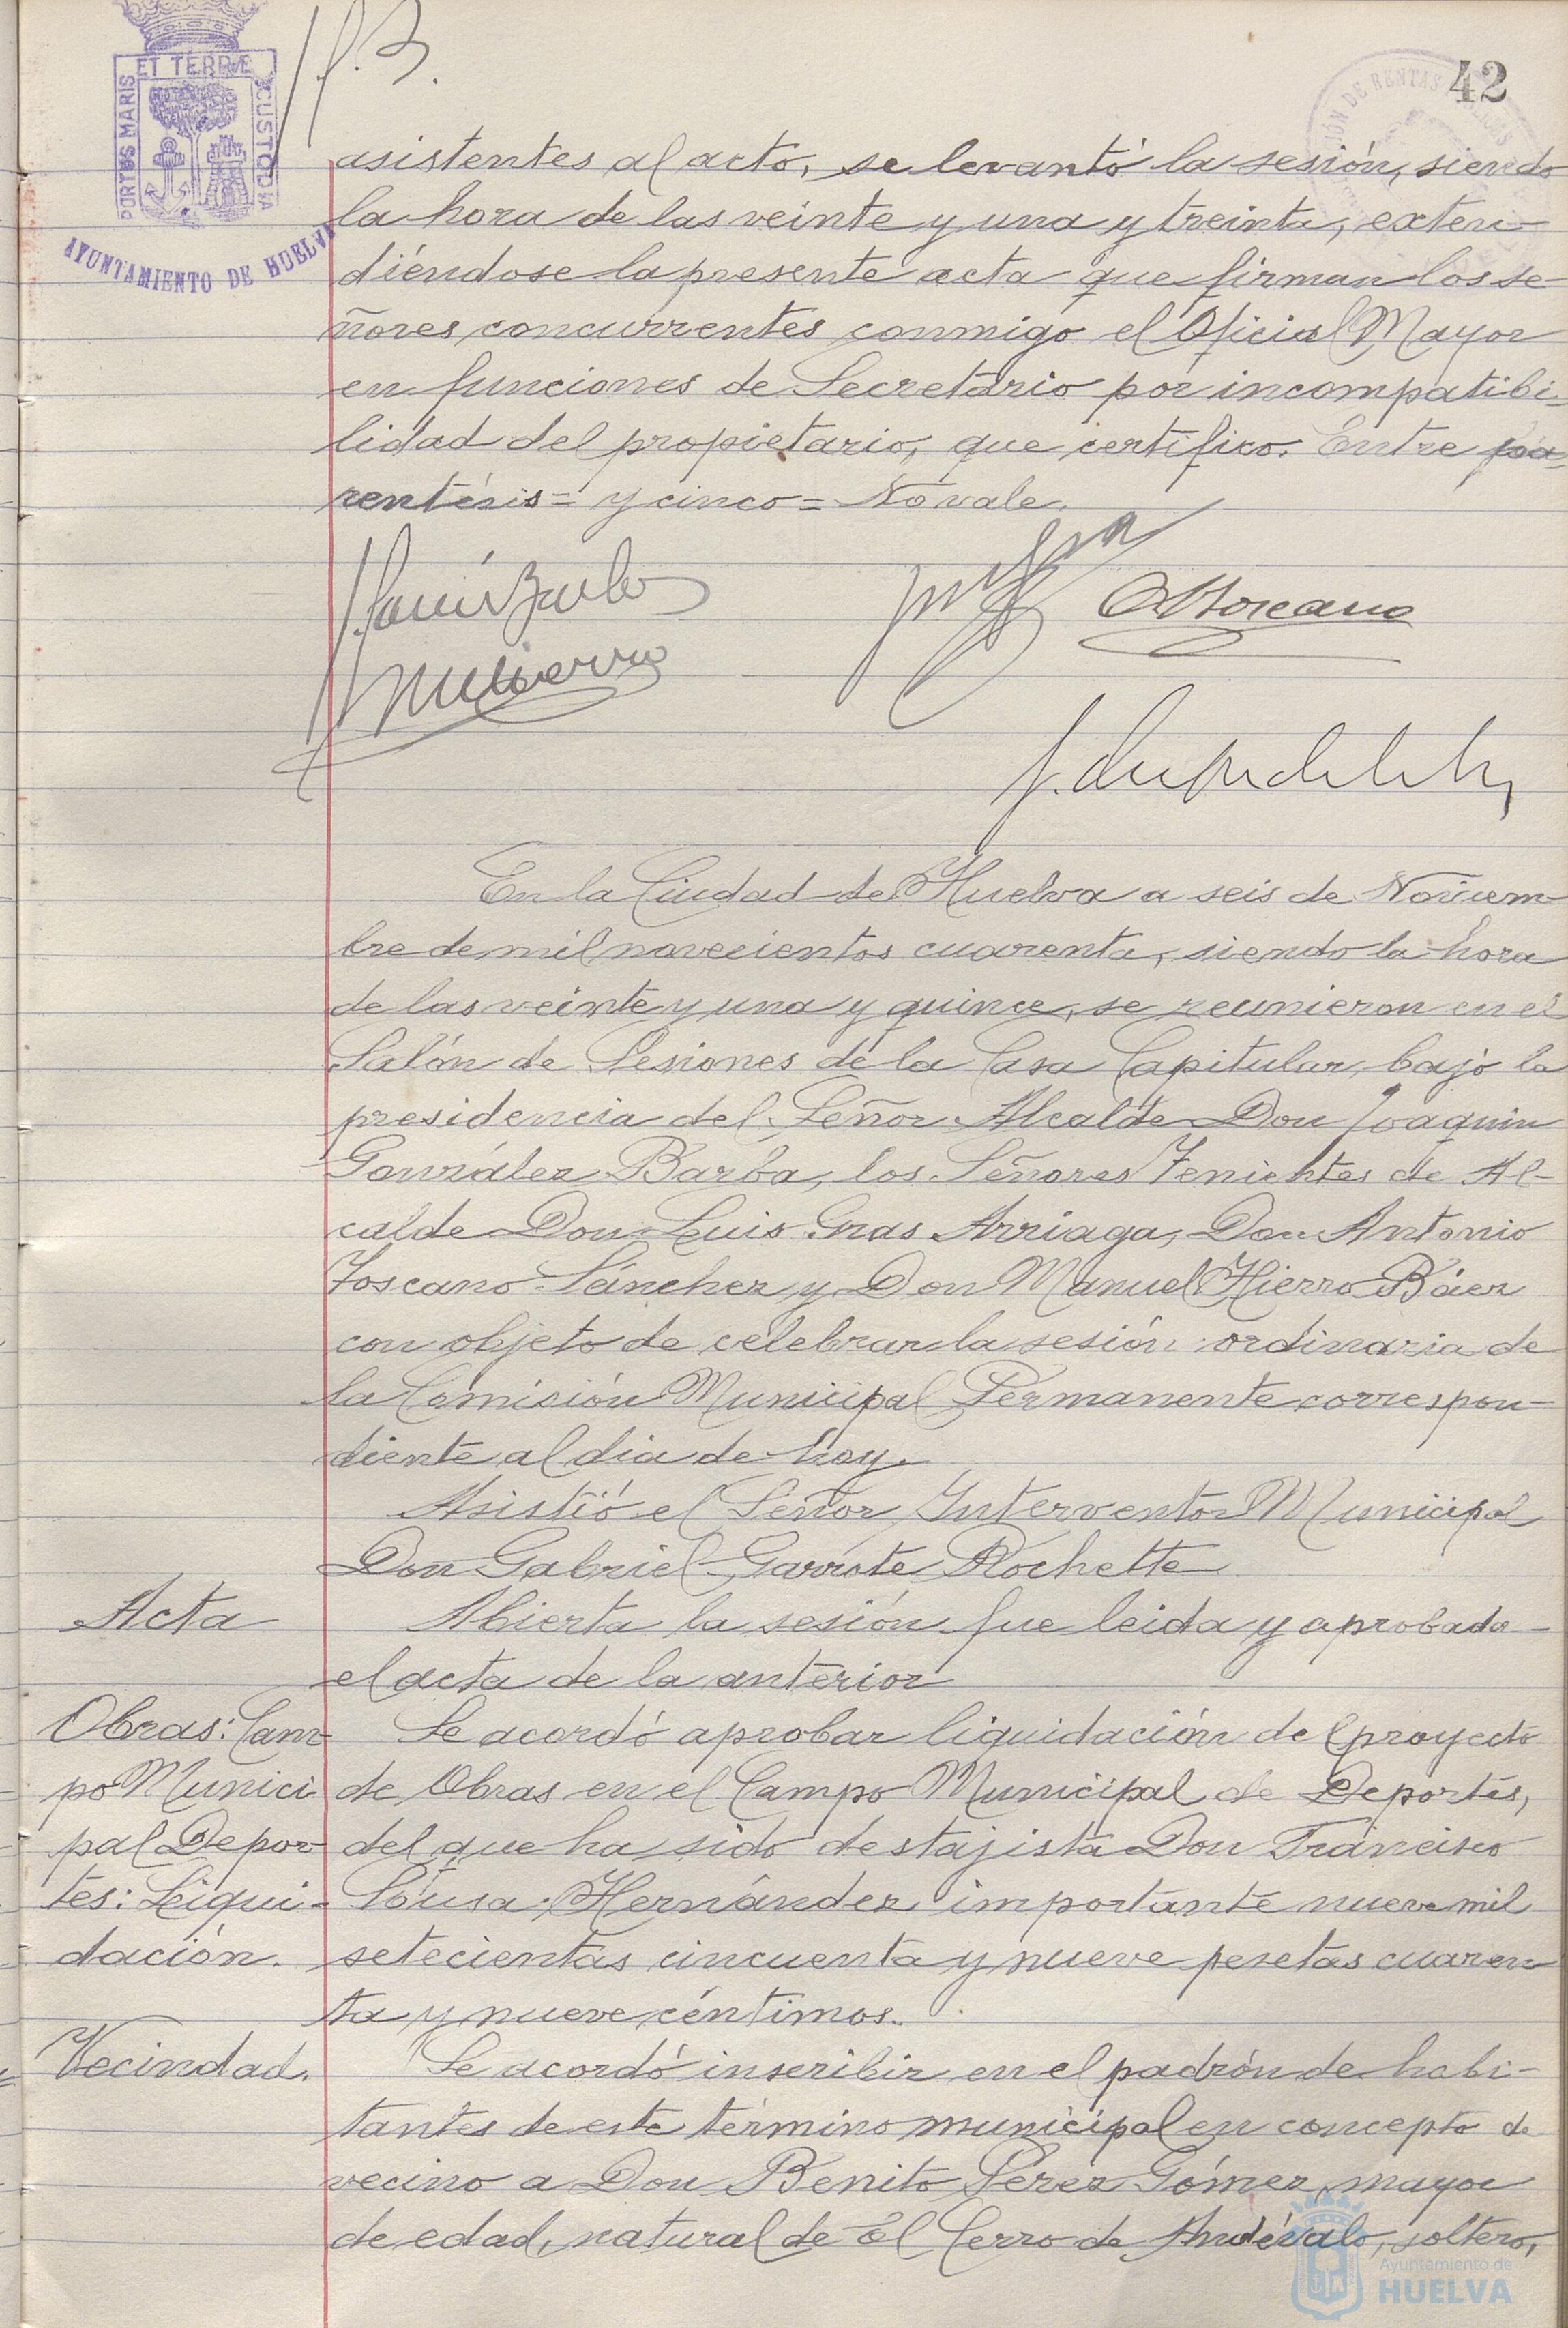 42
PORTUS MARIS ET TERRÆ CUSTODIA
AYUNTAMIENTO DE HUELVA
asistentes al acto, se levantó la sesión, siendo
la hora de las veinte y una y treinta, exten-
diéndose la presente acta que firman los se-
ñores concurrentes conmigo el Oficial Mayor
en funciones de Secretario por incompatibi-
lidad del propietario, que certifico. Entre pa-
rentésis = y cinco = No vale.
En la Ciudad de Huelva a seis de Noviem-
bre de mil novecientos cuarenta, siendo la hora
de las veinte y una y quince, se reunieron en el
Salón de Sesiones de la Casa Capitular, bajo la
presidencia del Señor Alcalde Don Joaquin
González Barba, los Señores Tenientes de Al-
calde Don Luis Gras Arriaga, Don Antonio
Toscano Sánchez y Don Manuel Hierro Báez
con objeto de celebrar la sesión ordinaria de
la Comisión Municipal Permanente correspon-
diente al dia de hoy.
Asistió el Señor Interventor Municipal
Don Gabriel Garrote Rochette
Acta
Abierta la sesión fue leida y aprobada
el acta de la anterior
Obras: Cam-
po Munici
pal Depor-
tes: Liqui-
dación.
Se acordó aprobar liquidación del proyecto
de Obras en el Campo Municipal de Deportes,
del que ha sido destajista Don Francisco
Sousa Hernández importante nueve mil
setecientas cincuenta y nueve pesetas cuaren
ta y nueve céntimos.
Vecindad.
Se acordó inscribir en el padrón de habi-
tantes de este término municipal en concepto de
vecino a Don Benito Pérez Gómez, mayor
de edad, natural de El Cerro de Andévalo, soltero,
Ayuntamiento de
HUELVA